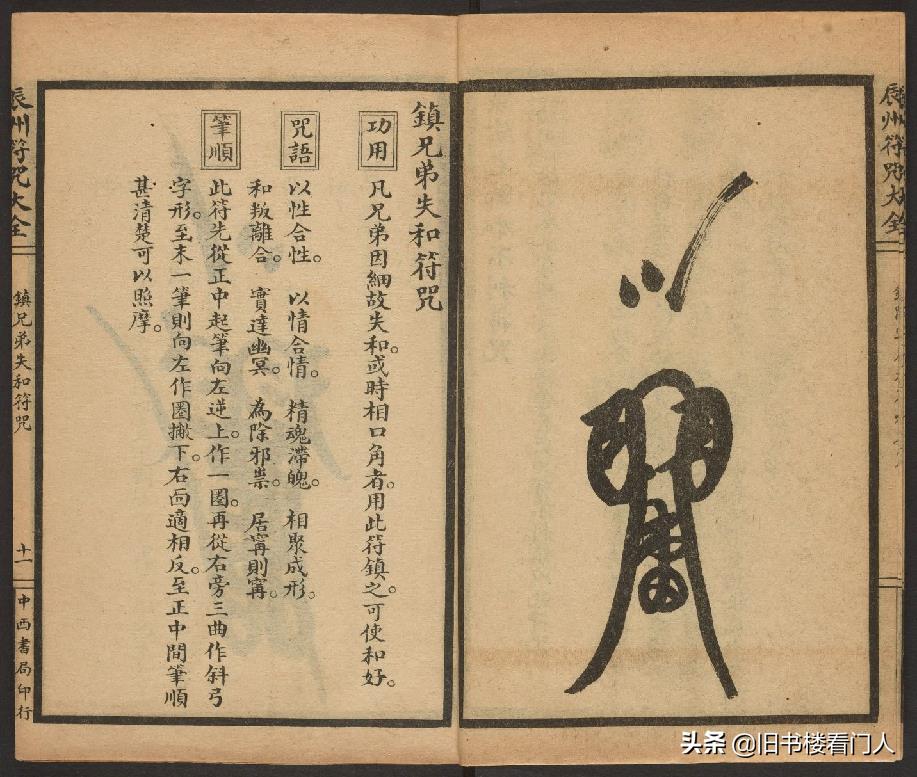 辰州符咒大全
鎮兄弟失和符咒
功用
凡兄弟因細故失和。或時相口角者。用此符鎮之。可使和好。
咒語
以性合性。以情合情。精魂滯魄。相聚成形。
和叛離合。實達幽冥。為除邪祟。居寗則寗。
筆順
此符先從正中起筆向左逆上。作一圈。再從右旁三曲作斜弓
字形。至末一筆則向左作圈撇下。右面適相反。至正中間筆順
甚清楚可以照摩。
辰州符咒大全
鎮兄弟失和符咒
十一
中西書局印行
头条 @旧书楼看门人